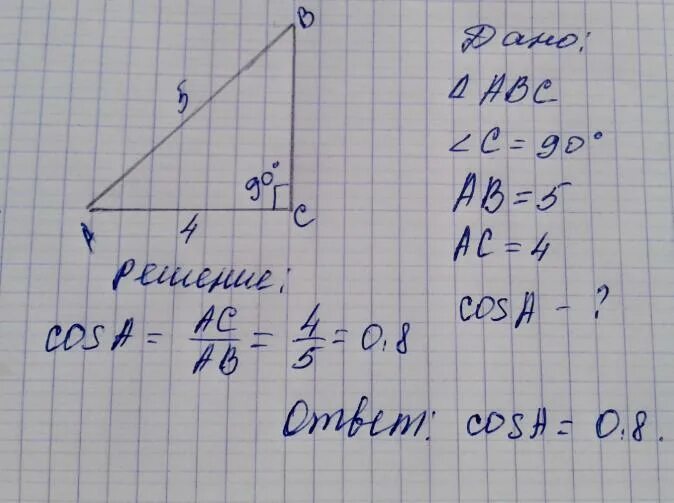 B
5
90°
A
4
C
Дано:
Δ ABC
∠C = 90°
AB = 5
AC = 4
cos A - ?
Решение:
cos A = AC/AB = 4/5 = 0.8
Ответ: cos A = 0.8.